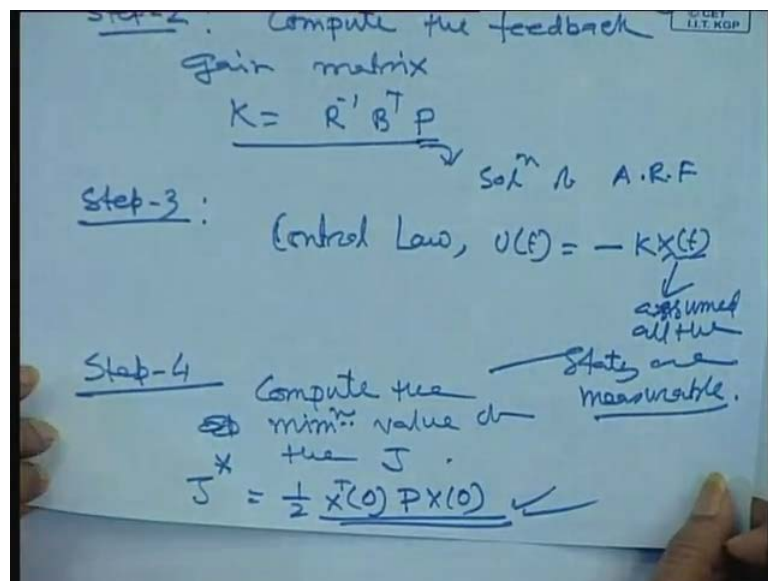 © CET
I.I.T. KGP
Step-2: Compute the feedback
gain matrix
K = R⁻¹ Bᵀ P
Solⁿ of A.R.E
Step-3:
Control Law, U(t) = - K X(t)
assumed
all the
States are
measurable.
Step-4 Compute the
minᵐ value of
the J.
J* = 1/2 Xᵀ(0) P X(0)